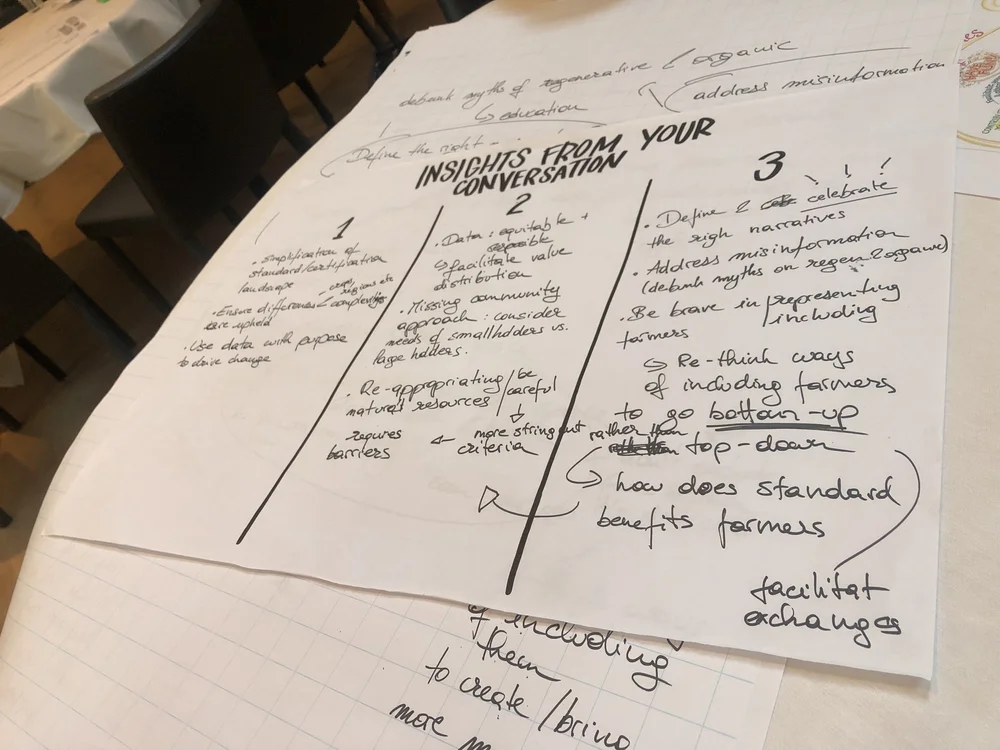 debunk myths of regenerative & organic
↳ education
address misinformation
Define the right
INSIGHTS FROM YOUR
CONVERSATION
1
• Simplification of
standard/certification
landscape
• Ensure differences & complexity
are upheld
• Use data with purpose
to drive change
2
• Data : equitable +
↳ facilitate value
distribution
• Missing community
approach : consider
needs of smallholders vs.
large holders.
• Re-appropriating / be
natural resources / careful
↓
more stringent
criteria
←
requires
barriers
3
• Define & celebrate ! !
the righ narratives
• Address misinformation
(debunk myths on regen & organic)
• Be brave in / representing
/ including
farmers
⇒ Re-think ways
of including farmers
to go bottom-up
rather than
top-down
→ how does standard
benefits farmers
facilitat
exchanges
of including
them
to create / bring
more